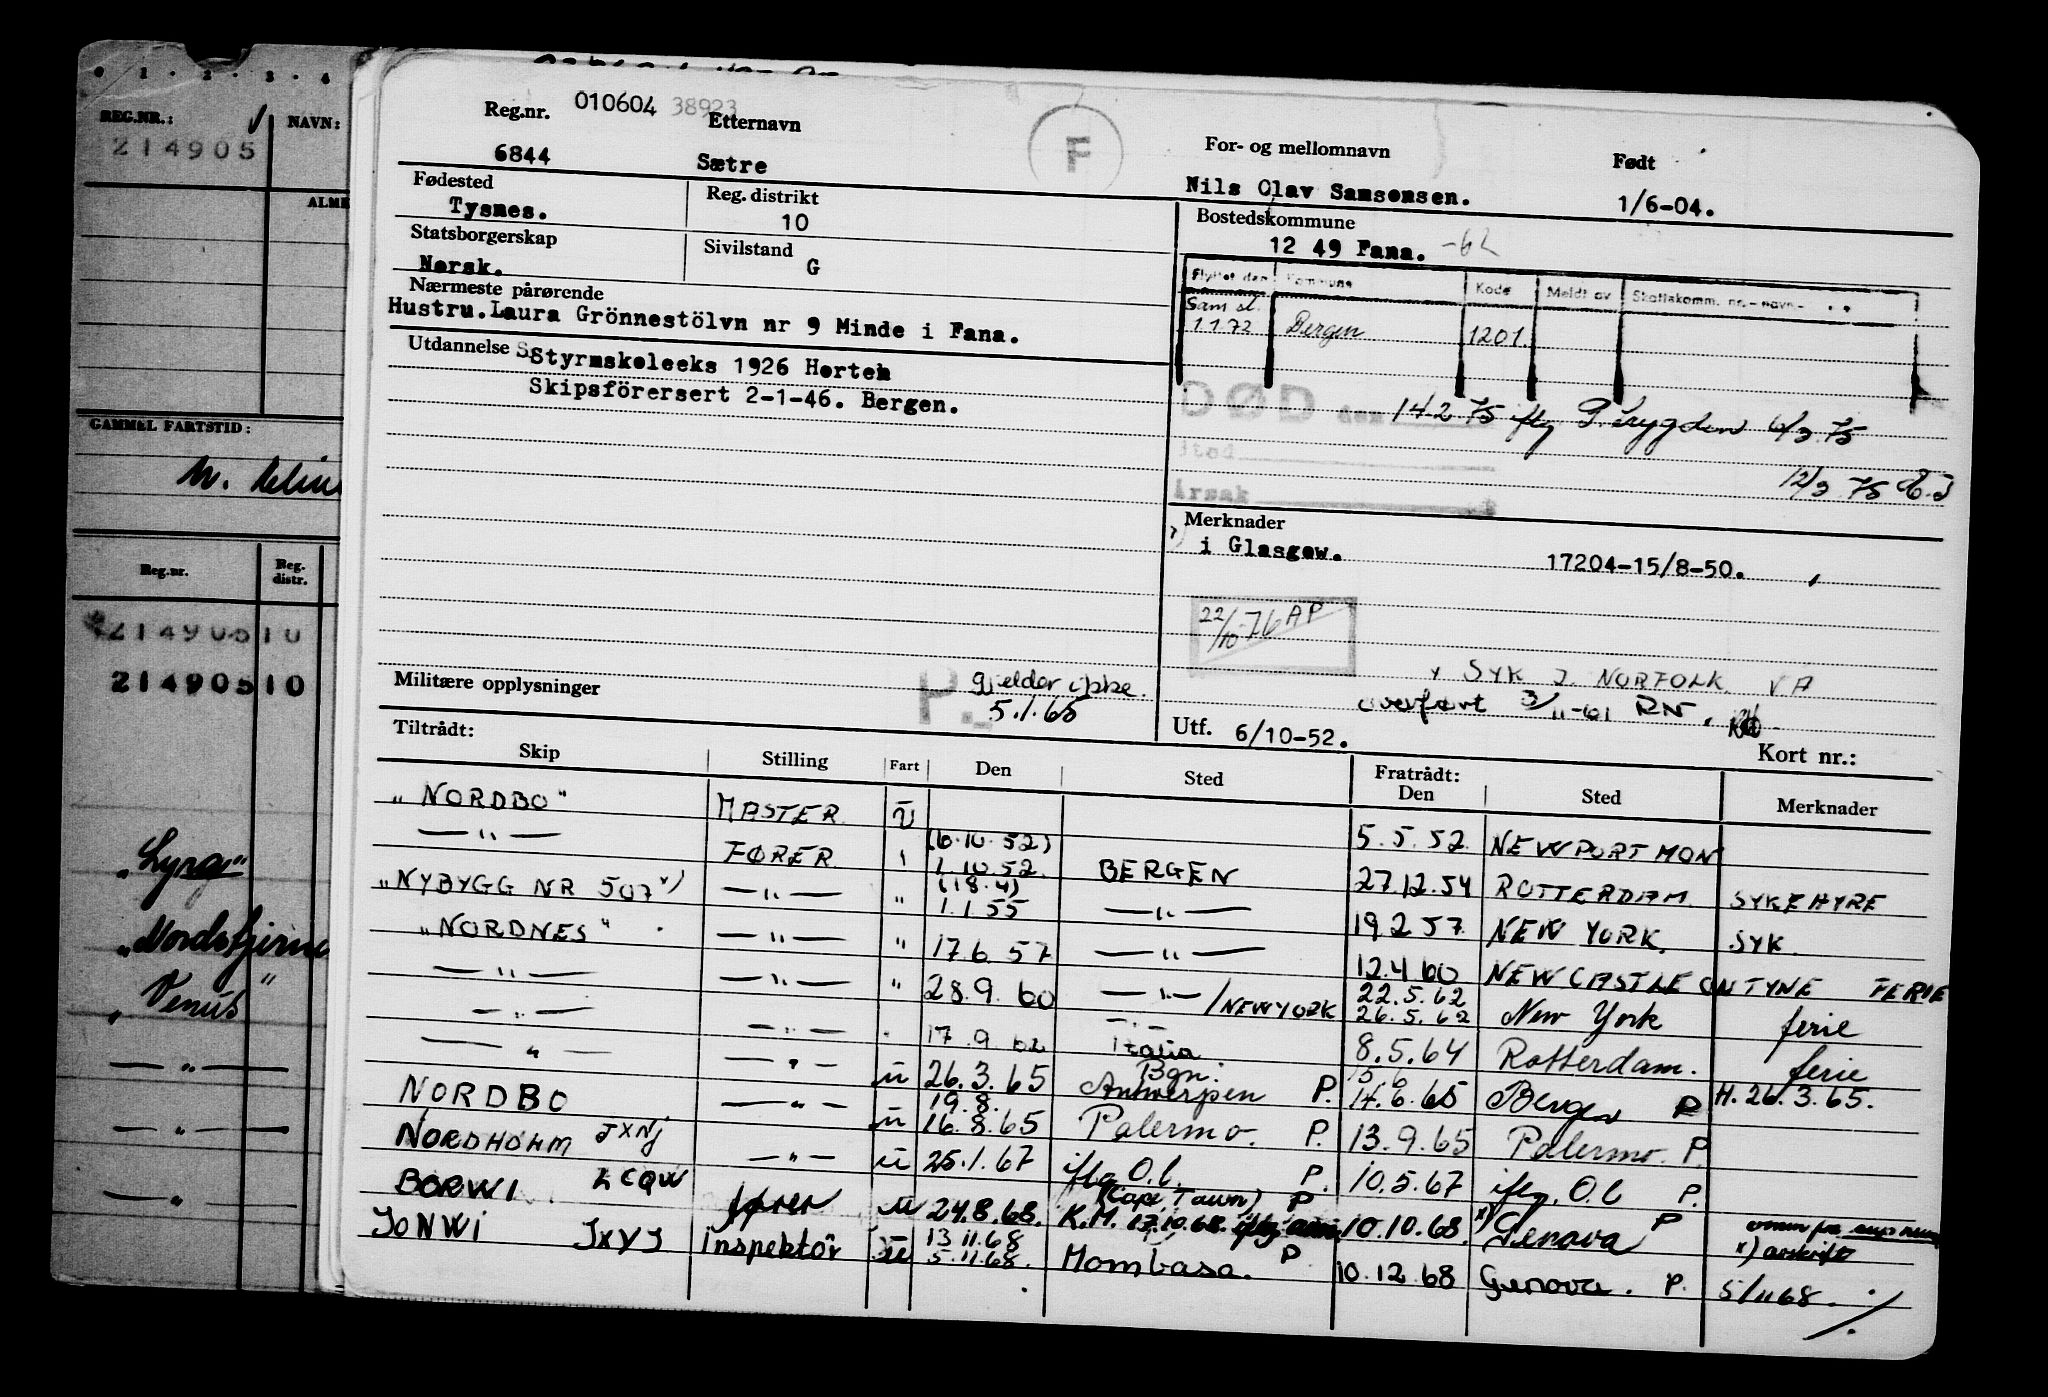 0 · 1 · 2 · 3 · 4
REG.NR.:
NAVN:
214905
GAMMEL FARTSTID:
Reg.nr. Reg. distr.
214905 10
214905 10
"Lyra"
"Nordstjerne
"Venus"
— " —
— " —
— " —
Reg.nr. 010604 38923 Etternavn
F
For- og mellomnavn Født
6844 Sætre Nils Olav Samsonsen. 1/6-04.
Fødested Reg. distrikt Bostedskommune
Tysnes. 10 12 49 Fana. -62
Statsborgerskap Sivilstand
Norsk. G
Flyttet den Kommune Kode Meldt av Skattekomm. nr. - navn -
Saml.
1.1.72 Bergen 1201.
Nærmeste pårørende
Hustru.Laura Grönnestölvn nr 9 Minde i Fana.
Utdannelse Styrmskoleeks 1926 Horten
Skipsförersert 2-1-46. Bergen.
DØD den 14.2.75 iflg P.trygden 6/3.75
Sted
12/3.75
Årsak
Merknader
i Glasgow. 17204-15/8-50.
22/10-76 AP
SYK I NORFOLK VA
overført 3/11-61 RN.
Militære opplysninger
P. gjelder ikke.
5.1.65
Utf. 6/10-52. Kort nr.:
Tiltrådt:
Skip Stilling Fart Den Sted Fratrådt: Den Sted Merknader
"NORDBO" MASTER U 5.5.52 NEWPORT MON
— " — FØRER " (6.10.52) 1.10.52 BERGEN 27.12.54 ROTTERDAM SYKEHYRE
"NYBYGG NR 507 x) — " — " (18.4) 1.1.55 — " — 19.2.57 NEW YORK. SYK.
"NORDNES" — " — " 17.6.57 — " — 12.4.60 NEWCASTLE ON TYNE FERIE
— " — — " — " 28.9.60 — " — / NEW YORK 22.5.62 26.5.62 New York ferie
— " — — " — " 17.9.62 Italia 8.5.64 Rotterdam. ferie
— " — — " — u 26.3.65 Bgn. Antwerpen P. 15.6 14.6.65 Bergen P H. 26.3.65.
NORDBO — " — u 19.8. 16.8.65 Palermo. P. 13.9.65 Palermo. P.
NORDHOLM JXNJ — " — u 25.1.67 iflg O.l. P. 10.5.67 iflg. O.l P.
BORWI LCQW fører u 24.8.68. (Cape Town) P K.M. 17.10.68. 10.10.68. x) Genova P
x) avskrift
JONWI JXYJ inspektör u 13.11.68 5.11.68. Mombasa. P 10.12.68 Genova. P. 5/11 68.